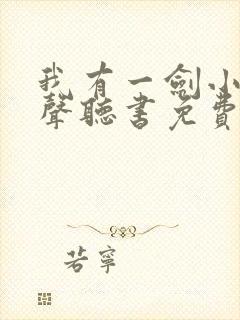 我有一劍小
聲聽書免費
若寧